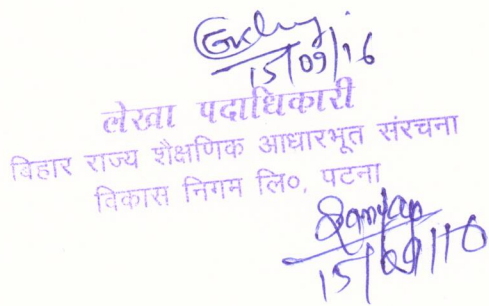 15/09/16
लेखा पदाधिकारी
बिहार राज्य शैक्षणिक आधारभूत संरचना
विकास निगम लि०, पटना
15/09/16